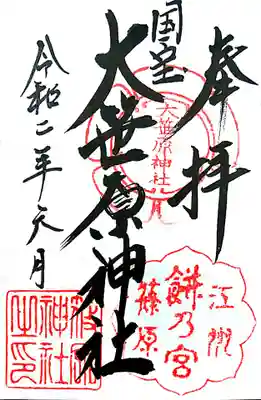 奉拝
国宝
大笹原神社
大笹原神社
江州
餅乃宮
篠原
令和二年六月
神社
之印